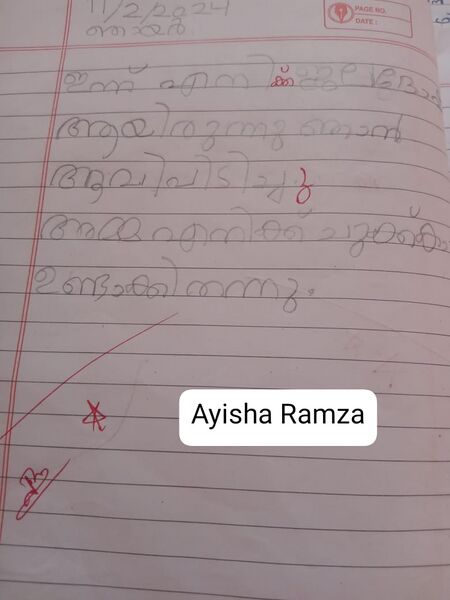 11/2/2024
ഞായർ
PAGE NO.
DATE :
ഇന്ന് എനിക്ക്
ആയിരുന്നു ഞാൻ
ആവിപിടിച്ചു
അമ്മ എനിക്ക്
ഉണ്ടാക്കി തന്നു.
Ayisha Ramza